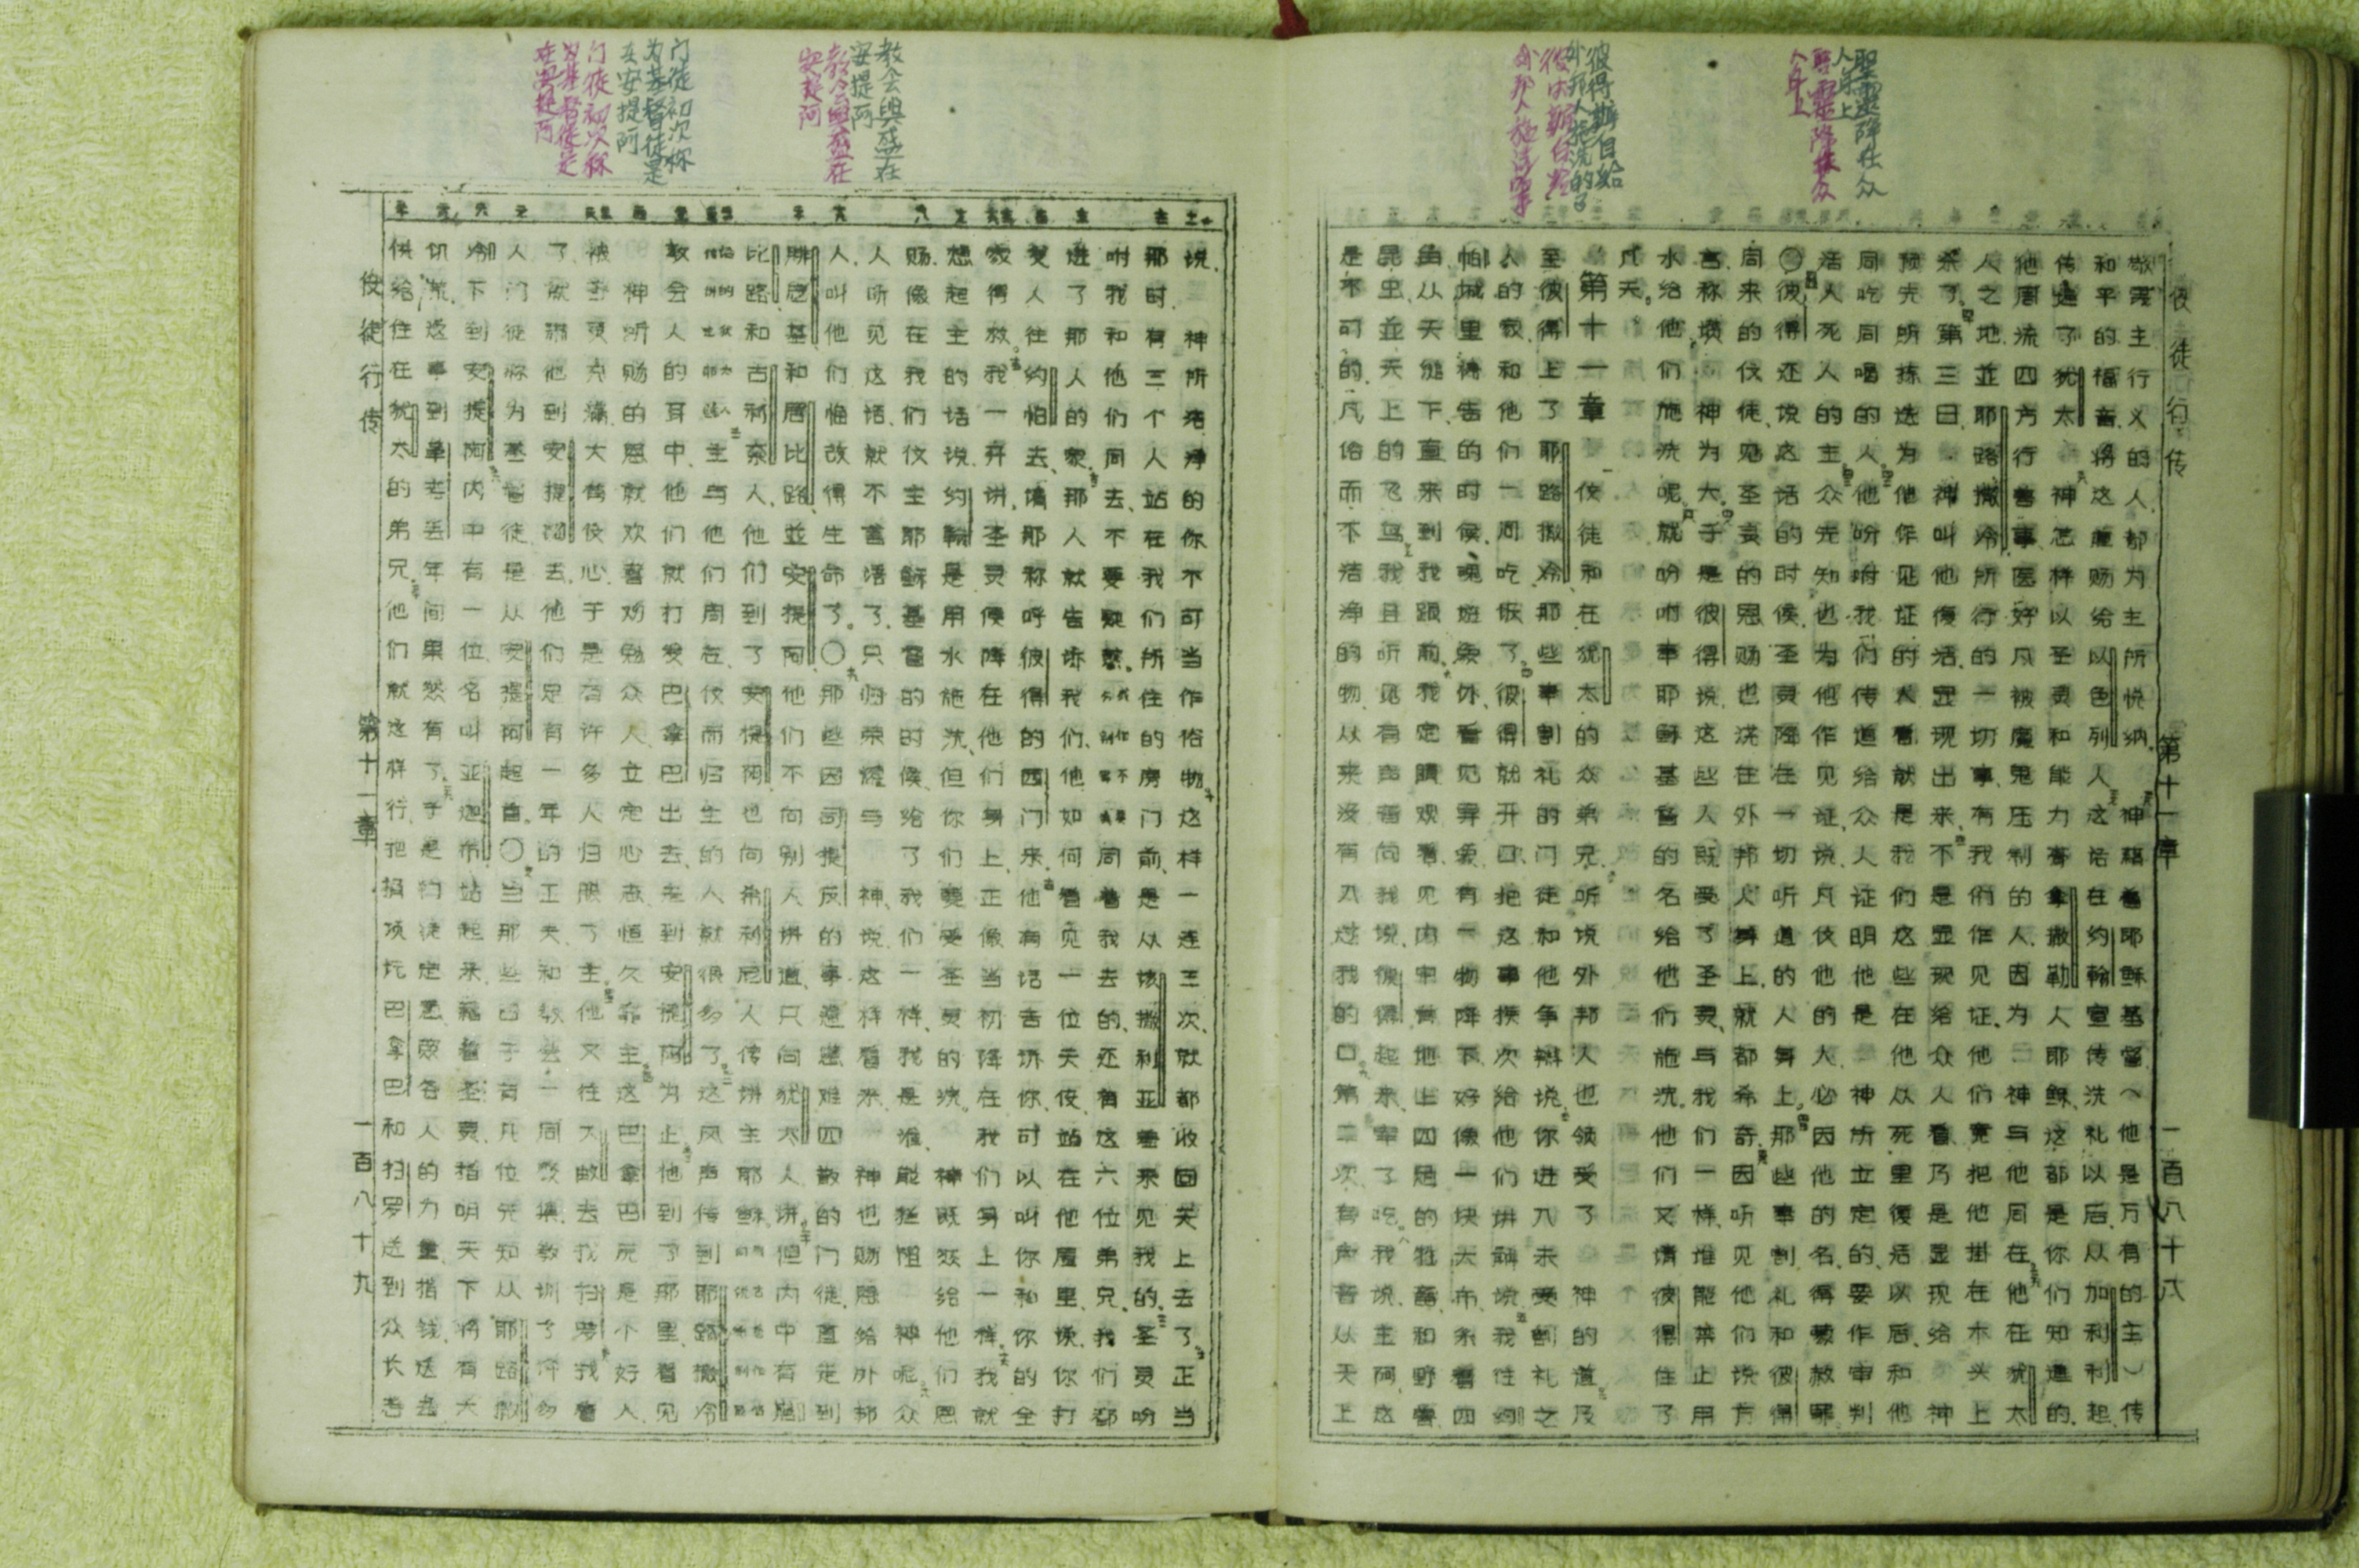 聖靈降在众
人身上
聖靈降在众
人身上
彼得斯自給
外邦人施洗的了
使徒行传 第十一章 一百八十八
敬畏主行义的人都为主所悦纳、神藉着耶稣基督（他是万有的主）传
和平的福音、将这道赐给以色列人这话在约翰宣传洗礼以后、从加利利起
传遍了犹太 神怎样以圣灵和能力膏拿撒勒人耶稣、这都是你们知道的、
他周流四方行善事、医好凡被魔鬼压制的人、因为 神与他同在他在犹太
人之地並耶路撒冷所行的一切事、有我们作见证、他们竟把他掛在木头上
杀了、第三日 神叫他復活、显现出来、不是显现给众人看、乃是显现给 神
预先所拣选为他作见证的人看、就是我们这些在他从死里復活以后和他
同吃同喝的人、他吩咐我们传道给众人证明他是 神所立定的、要作审判
活人死人的主、众先知也为他作见证、说、凡信他的人、必因他的名得蒙赦罪
〇彼得还说这话的时候、圣灵降在一切听道的人身上、那些事割礼和彼得
同来的信徒、见圣灵的恩赐也浇在外邦人身上、就都希奇、因听见他们说方
言、称讚 神为大、于是彼得说、这些人既受了圣灵、与我们一样、谁能禁止用
水给他们施洗呢、就吩咐奉耶稣基督的名给他们施洗、他们又请彼得住了
几天。
第十一章 使徒和在犹太的众弟兄、听说外邦人也领受了 神的道及
至彼得上了耶路撒冷、那些事割礼的门徒和他争辩说、你进入未受割礼之
人的家和他们一同吃饭了、彼得就开口、把这事挨次给他们讲解说、我往约
帕城里祷告的时候、魂游象外、看见异象、有一物降下、好像一块大布、系着四
角、从天缒下、直来到我跟前、我定睛观看、见内中有地上四足的牲畜和野兽、
昆虫、並天上的飞鸟、我且听见有声音向我说、彼得起来、宰了吃、我说、主阿、这
是不可的、凡俗而不洁净的物、从来没有入过我的口、第二次有声音从天上
教会興盛在
安提阿
教会興盛在
安提阿
门徒初次称
为基督徒是
在安提阿
门徒初次称
为基督徒是
在安提阿
说、 神所洁净的、你不可当作俗物、这样一连三次、就都收回天上去了、正当
那时、有三个人站在我们所住的房门前、是从该撒利亚差来见我的、圣灵吩
咐我和他们同去、不要疑惑、同着我去的、还有这六位弟兄、我们都
进了那人的家、那人就告诉我们、他如何看见一位天使、站在他屋里、说、你打
发人往约帕去、请那称呼彼得的西门来、他有话告诉你、可以叫你和你的全
家得救、我一开讲、圣灵便降在他们身上、正像当初降在我们身上一样、我就
想起主的话说、约翰是用水施洗、但你们要受圣灵的洗、 神既然给他们恩
赐、像在我们信主耶稣基督的时候给了我们一样、我是谁、能拦阻 神呢、众
人听见这话、就不言语了、只归荣耀与 神、说、这样看来、 神也赐恩给外邦
人、叫他们悔改得生命了。〇那些因司提反的事遭患难四散的门徒、直走到
腓尼基和居比路並安提阿、他们不向别人讲道、只向犹太人讲、但内中有居
比路和古利奈人、他们到了安提阿、也向希利尼人传讲主耶稣
主与他们同在、信而归主的人就很多了、这风声传到耶路撒冷
教会人的耳中、他们就打发巴拿巴出去、走到安提阿为止、他到了那里、看见
神所赐的恩就欢喜、劝勉众人、立定心志、恒久靠主、这巴拿巴原是个好人、
被圣灵充满、大有信心、于是有许多人归服了主、他又往大数去找扫罗、找着
了、就带他到安提阿去、他们足有一年的工夫、和教会一同聚集、教训了许多
人、门徒称为基督徒、是从安提阿起首。〇当那些日子、有几位先知从耶路撒
冷下到安提阿、内中有一位、名叫亚迦布、站起来、藉着圣灵、指明天下将有大
饥荒、这事到革老丢年间果然有了、于是门徒定意照各人的力量捐钱、送去
供给住在犹太的弟兄、他们就这样行、把捐项托巴拿巴和扫罗送到众长老
使徒行传 第十一章 一百八十九